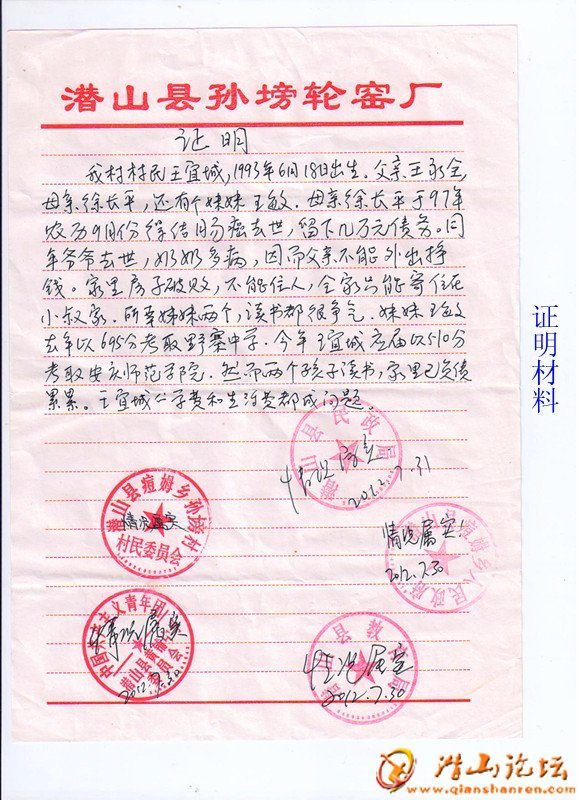 潜山县孙塝轮窑厂
证明
我村村民王宜城，1993年6月18日出生．父亲王永全，
母亲徐长平，还有个妹妹王敏．母亲徐长平于97年
农历9月份得结肠癌去世，留下几万元债务。同
年爷爷去世，奶奶多病，因而父亲不能外出挣
钱。家里房子破败，不能住人，全家只能寄住在
小叔家．所幸姊妹两个，读书都很争气．妹妹王敏
去年以695分考取野寨中学．今年王宜城应届以510分
考取安庆师范学院．然而两个孩子读书，家里已负债
累累。王宜城上学费和生活费都成问题。
潜山县民政局
情况属实
2012.7.31
潜山县痘姆乡孙塝村
村民委员会
情况属实
潜山县痘姆乡人民政府
情况属实！
2012.7.30
中国共产主义青年团
潜山县
委员会
情况属实
2012.7.30
潜山县教育局
情况属实
2012.7.30
证明材料
潜山论坛
www.qianshanren.com